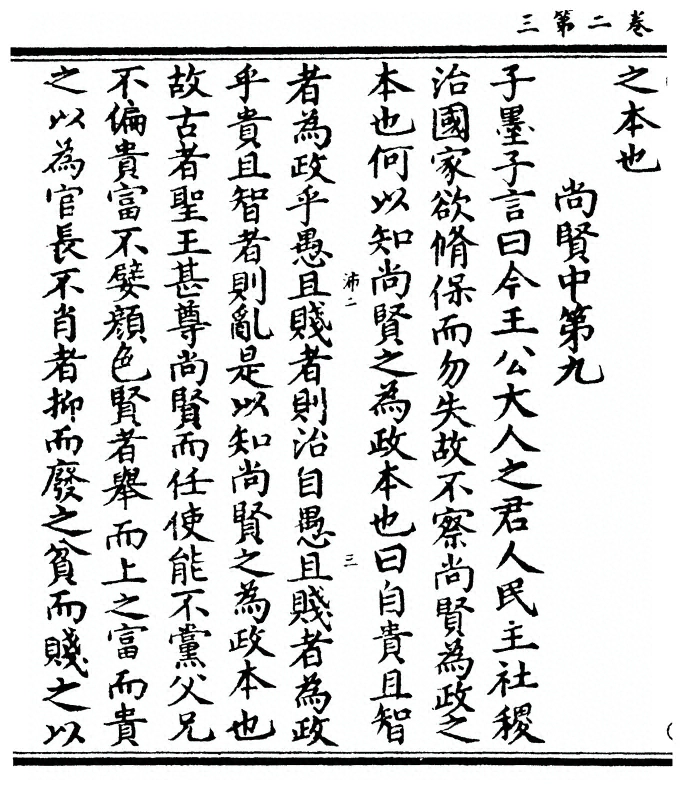 卷二第三
之本也
尚賢中第九
子墨子言曰今王公大人之君人民主社稷
治國家欲脩保而勿失故不察尚賢為政之
本也何以知尚賢之為政本也曰自貴且智
者為政乎愚且賤者則治自愚且賤者為政
沛二
三
乎貴且智者則亂是以知尚賢之為政本也
故古者聖王甚尊尚賢而任使能不黨父兄
不偏貴富不嬖顏色賢者舉而上之富而貴
之以為官長不肖者抑而廢之貧而賤之以